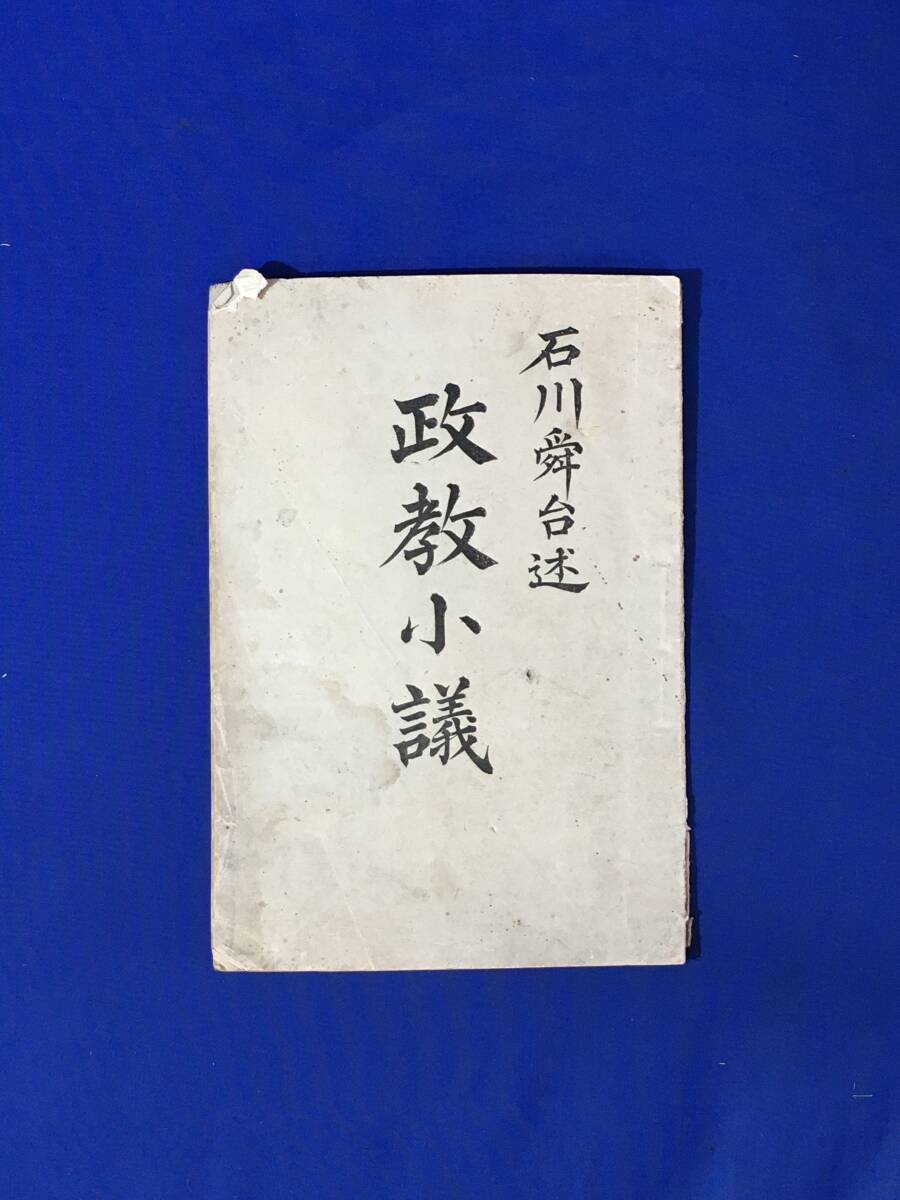 石川舜台述
政教小議